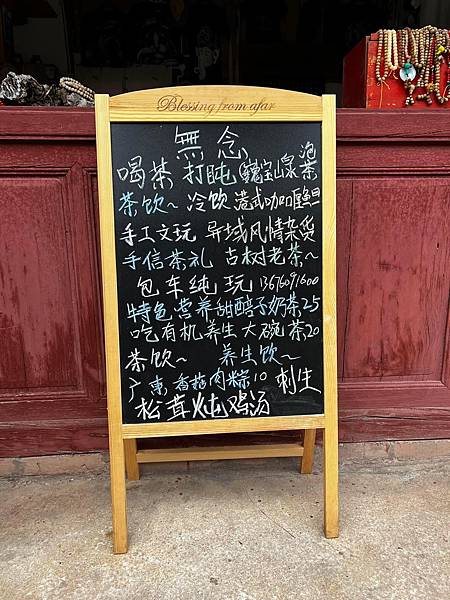 Blessing from afar
無念
喝茶 打盹 (魏宝山泉泡茶
茶饮~ 冷饮 港式咖喱鱼旦
手工文玩 异域风情杂货
手信茶礼 古树老茶~
包车纯玩 13676091600
特色.营养甜醅子奶茶25
吃有机养生大碗茶20
茶饮~ 养生饮~
广東香菇肉粽10 刺生
松茸炖鸡汤